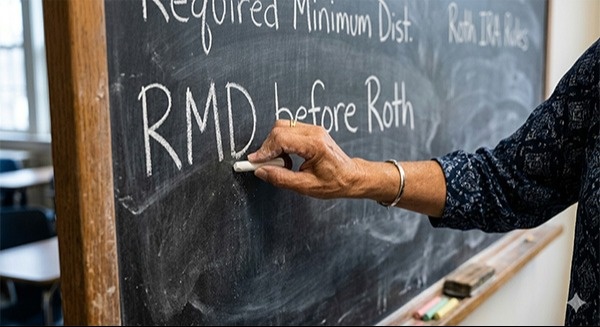 Required Minimum Dist.
Roth IRA Rules
RMD before Roth